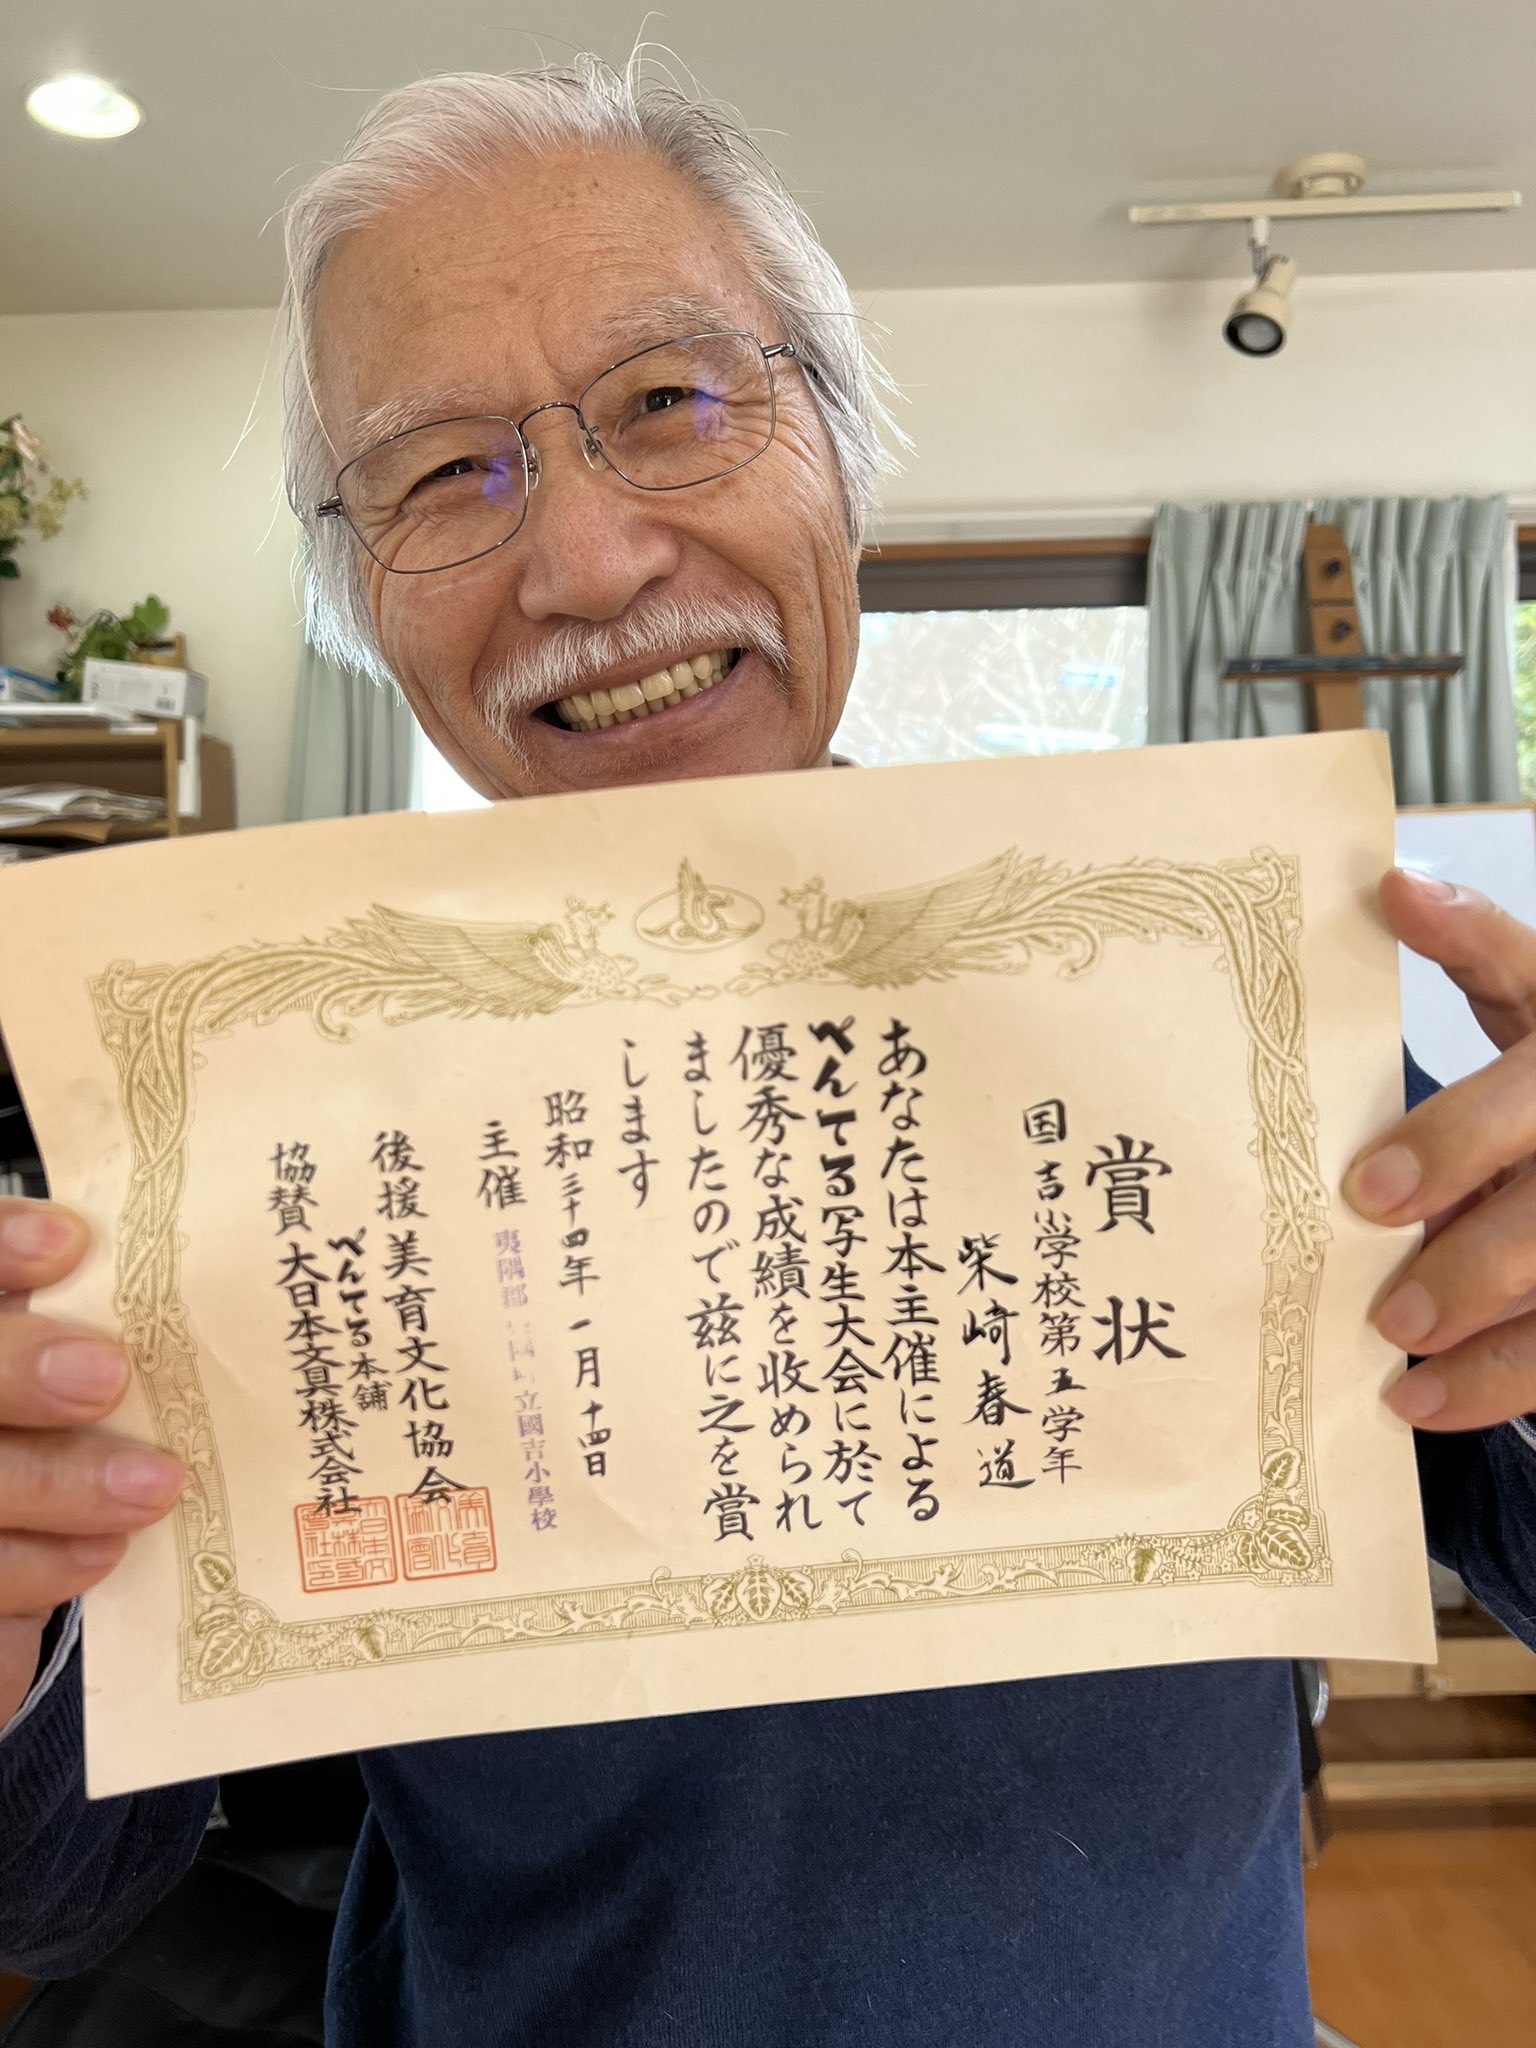 賞状
国吉小学校第五学年
柴崎春道
あなたは本主催による
ぺんてる写生大会に於て
優秀な成績を収められ
ましたので茲に之を賞
します
昭和三十四年一月十四日
主催 夷隅郡 立國吉小學校
後援 美育文化協会
ぺんてる本舗
協賛 大日本文具株式会社
美育文化協會